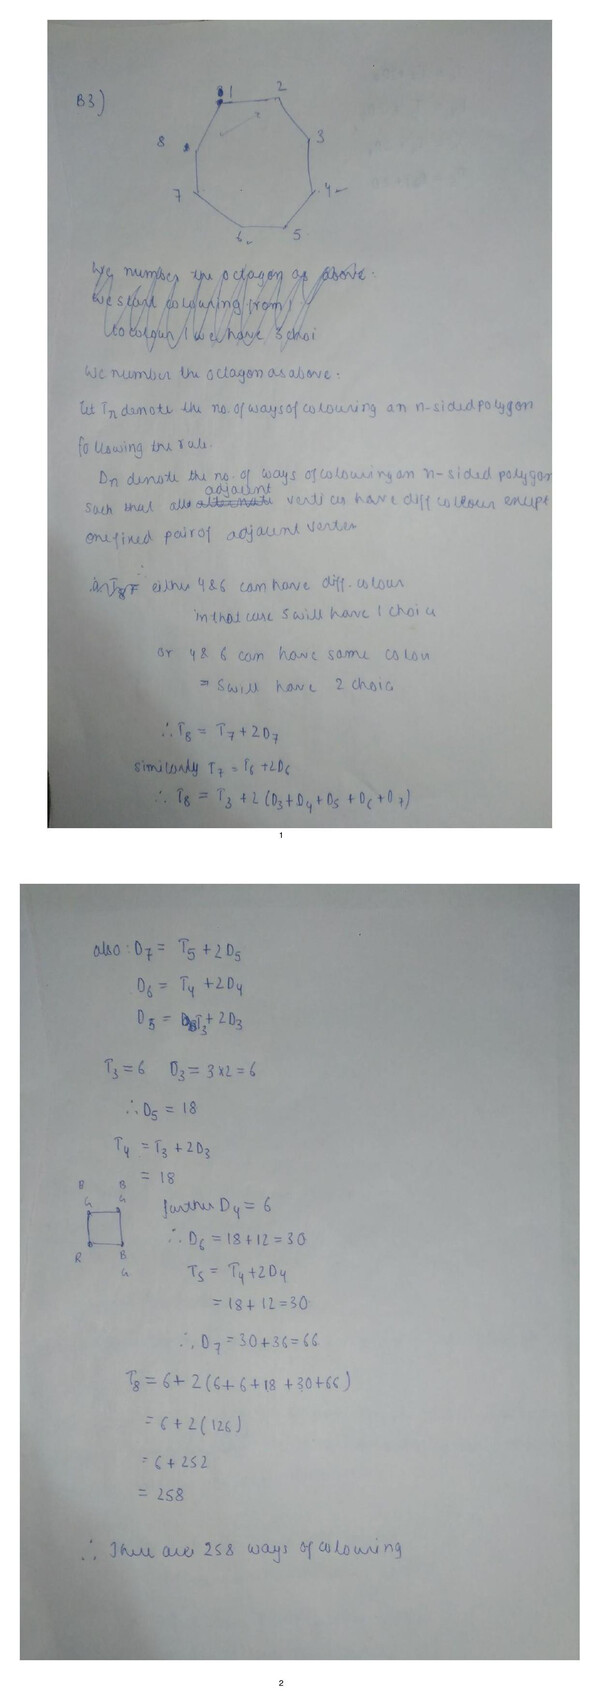 B3)
1
2
3
4
5
6
7
8
We number the octagon as above:
we start colouring from 1
to colour 1 we have 3 choi
We number the octagon as above:
let Tn denote the no. of ways of colouring an n-sided polygon
following the rule.
Dn denote the no. of ways of colouring an n-sided polygon
such that all adjacent vertices have diff colours except
one fixed pair of adjacent vertex
in T8 either 4 & 6 can have diff. colour
in that case 5 will have 1 choice
or 4 & 6 can have same colour
= 5 will have 2 choice
∴ T8 = T7 + 2D7
similarly T7 = T6 + 2D6
∴ T8 = T3 + 2(D3 + D4 + D5 + D6 + D7)
1
also: D7 = T5 + 2D5
D6 = T4 + 2D4
D5 = T3 + 2D3
T3 = 6 D3 = 3×2 = 6
∴ D5 = 18
T4 = T3 + 2D3
= 18
B B
G G
R B
G
further D4 = 6
∴ D6 = 18 + 12 = 30
T5 = T4 + 2D4
= 18 + 12 = 30
∴ D7 = 30 + 36 = 66
T8 = 6 + 2(6 + 6 + 18 + 30 + 66)
= 6 + 2(126)
= 6 + 252
= 258
∴ There are 258 ways of colouring
2